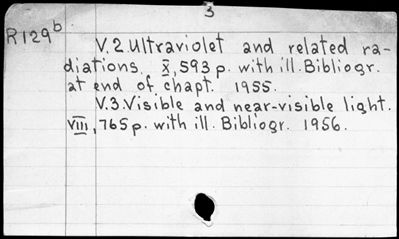 3
R129b
V.2.Ultraviolet and related ra-
diations. X, 593 p. with ill. Bibliogr.
at end of chapt. 1955.
V.3.Visible and near-visible light.
VIII, 765 p. with ill. Bibliogr. 1956.